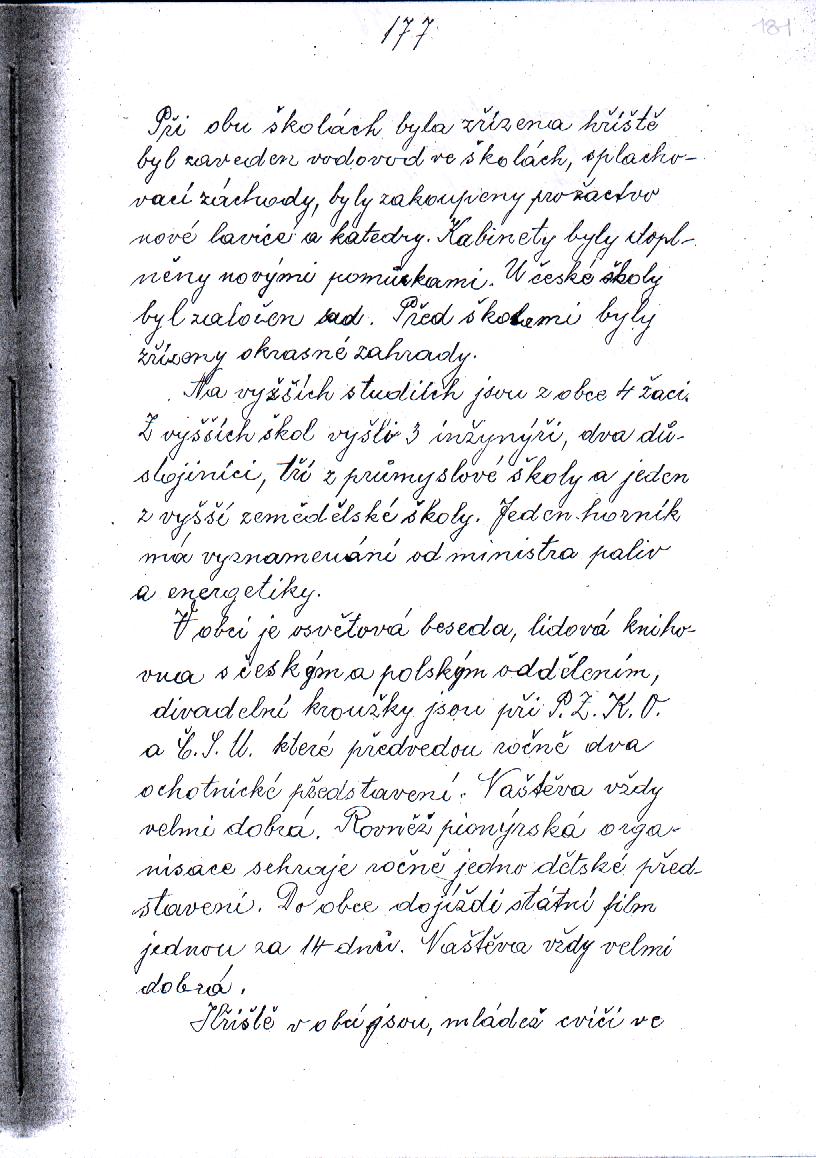 177
181
Při obu školách byla zřízena hříště
byl zaveden vodovod ve školách, splacho-
vací záchody, byly zakoupeny pro žactvo
nové lavice a katedry. Kabinety byly dopl-
něny novými pomůckami. U české školy
byl založen sad. Před školami byly
zřízeny okrasné zahrady.
Na vyžších studiích jsou z obce 4 žaci.
Z vyšších škol vyšli 3 inžynýři, dva dů-
stojinici, tři z průmyslové školy a jeden
z vyšší zemědělské školy. Jeden horník
má vyznamenání od ministra paliv
a energetiky.
V obci je osvětová beseda, lidová kniho-
vna s českým a polským oddělením,
divadelní kroužky jsou při P. Z. K. O.
a Č. S. M. které předvedou ročně dva
ochotnické představení. Naštěva vždy
velmi dobrá. Rovněž pionýrská orga-
nisace sehraje ročně jedno dětské před-
stavení. Do obce dojíždí státní film
jednou za 14 dnů. Naštěva vždy velmi
dobrá.
Hřiště v obci jsou, mládež cvičí ve